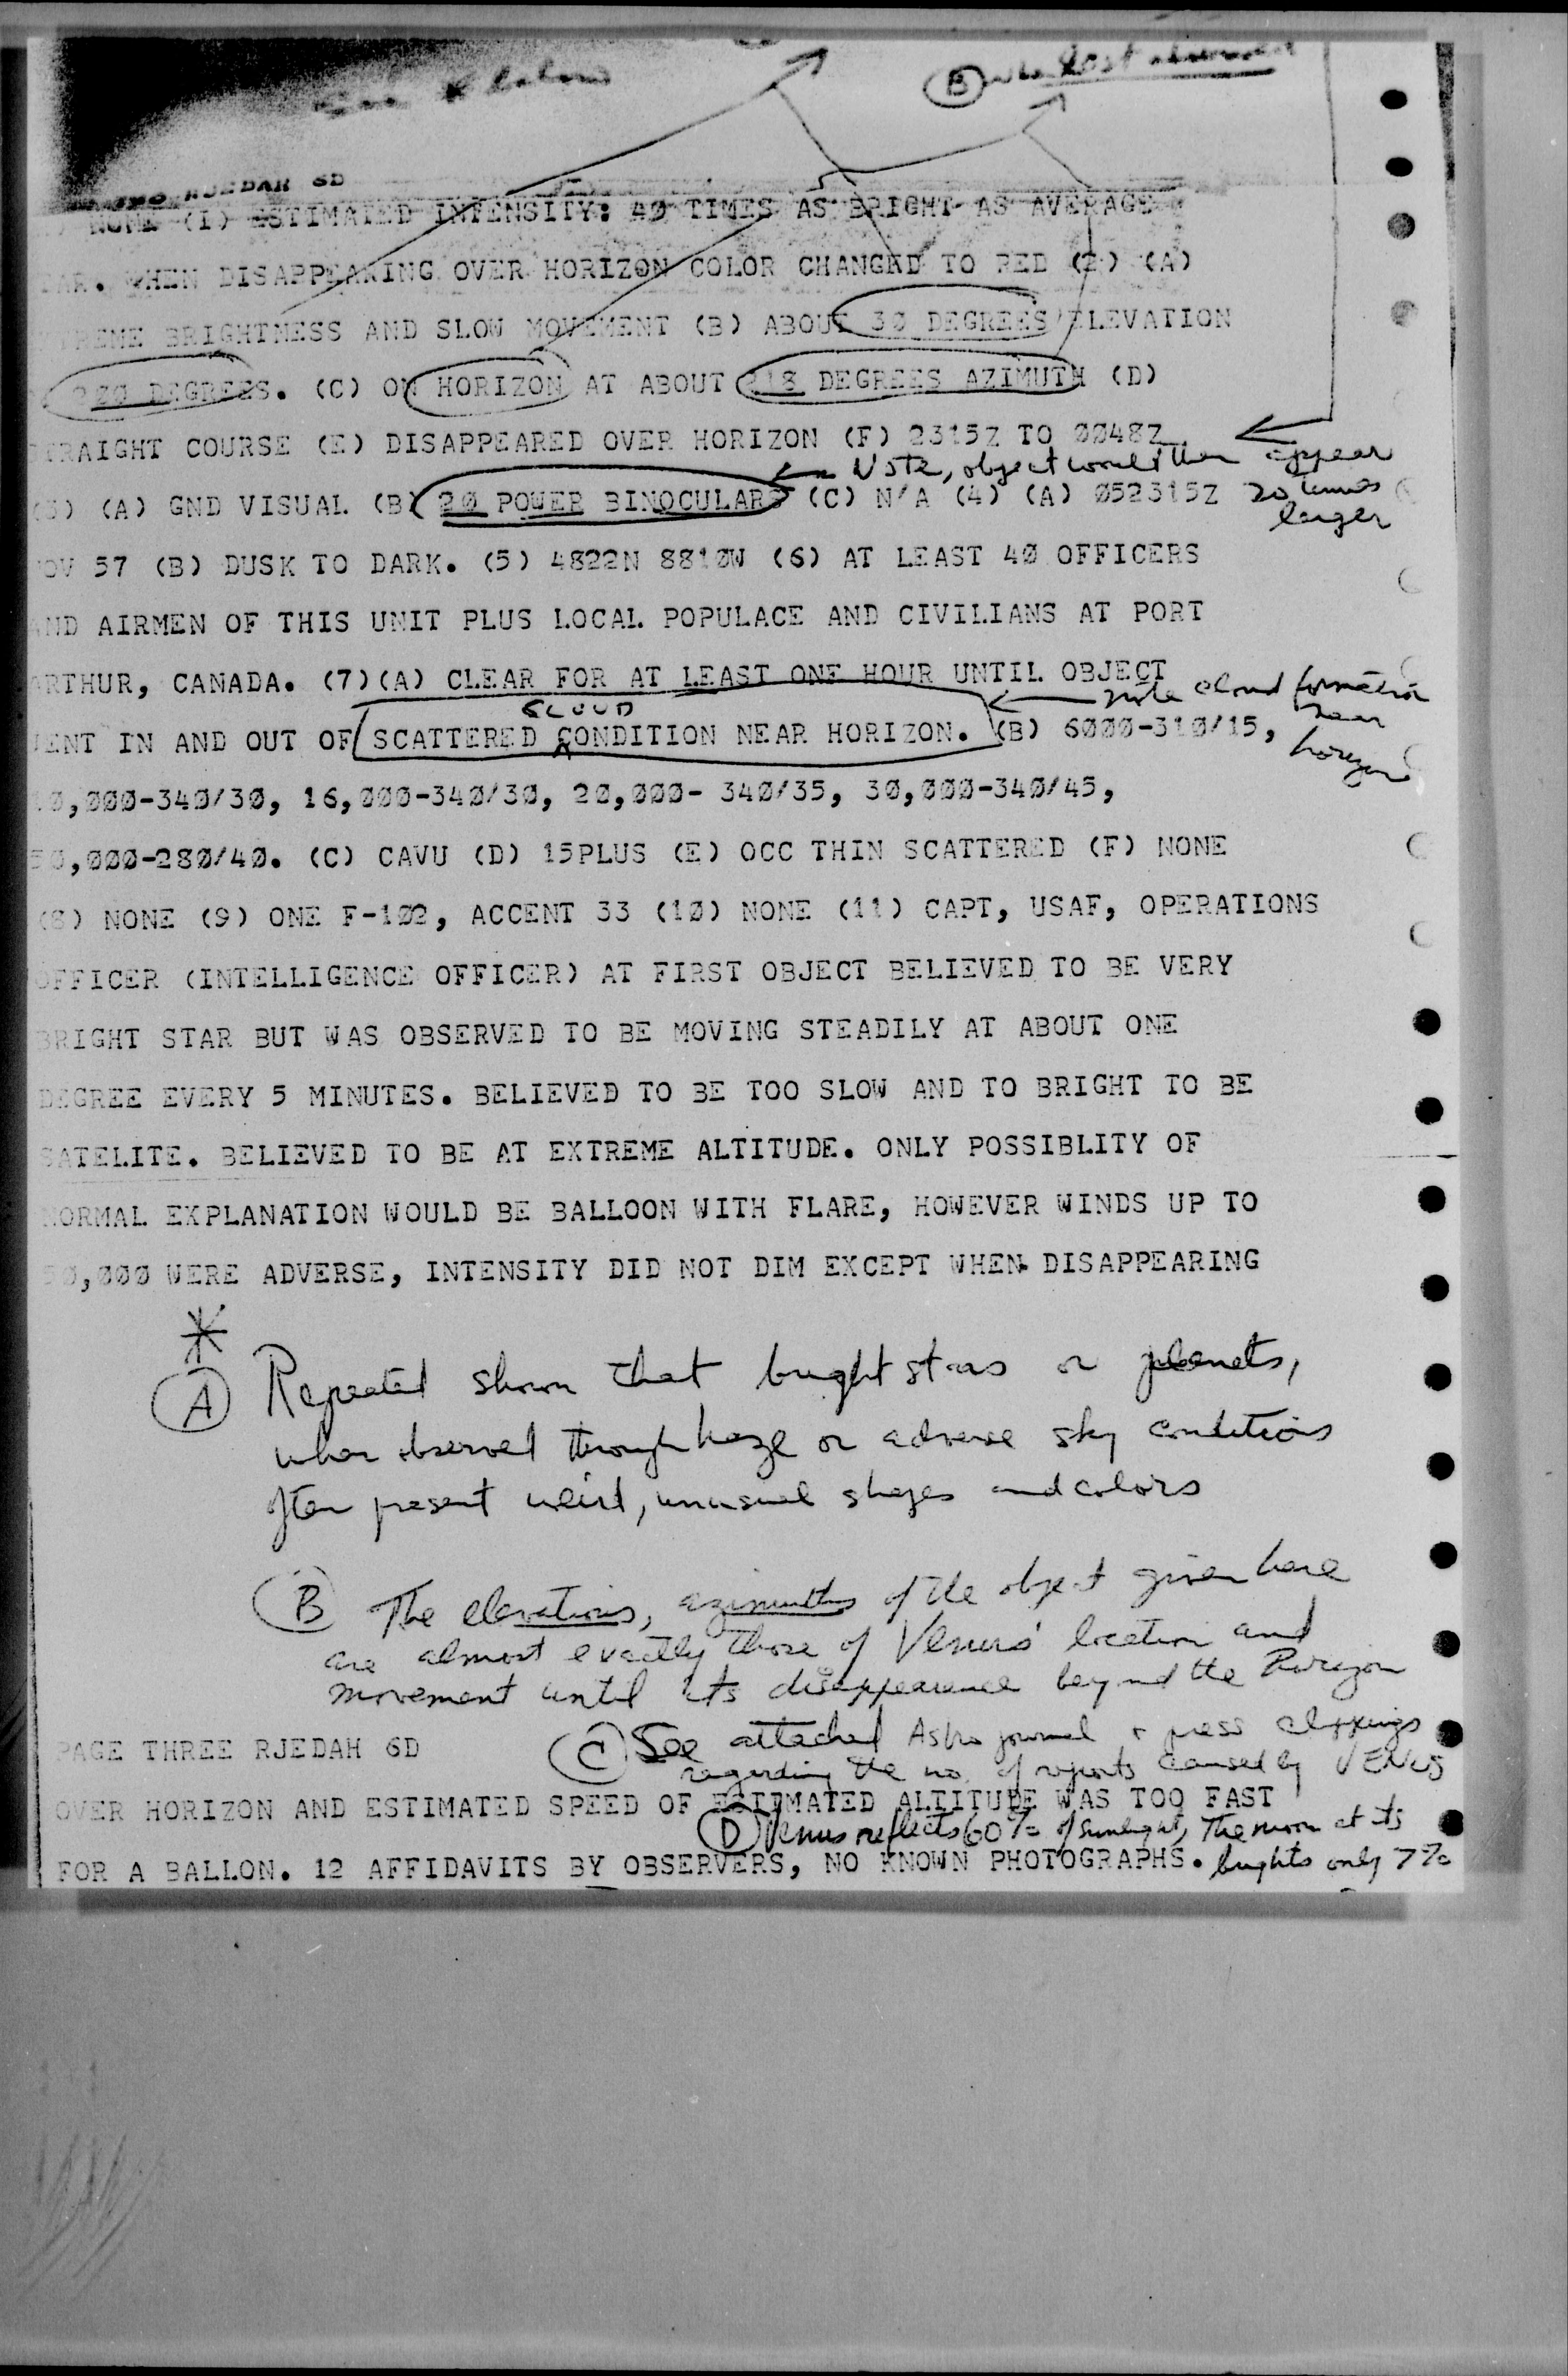 B
RJEDAH 6D
NONE (I) ESTIMATED INTENSITY: 40 TIMES AS BRIGHT AS AVERAGE
WHEN DISAPPEARING OVER HORIZON COLOR CHANGED TO RED (2) (A)
BRIGHTNESS AND SLOW MOVEMENT (B) ABOUT 30 DEGREES ELEVATION
DEGREES. (C) ON HORIZON AT ABOUT DEGREES AZIMUTH (D)
STRAIGHT COURSE (E) DISAPPEARED OVER HORIZON (F) 2315Z TO 0048Z.
Note, object would then appear
20 times
larger
(3) (A) GND VISUAL (B) 20 POWER BINOCULARS (C) N/A (4) (A) 052315Z
OV 57 (B) DUSK TO DARK. (5) 4822N 8810W (6) AT LEAST 40 OFFICERS
AND AIRMEN OF THIS UNIT PLUS LOCAL POPULACE AND CIVILIANS AT PORT
ARTHUR, CANADA. (7)(A) CLEAR FOR AT LEAST ONE HOUR UNTIL OBJECT
note cloud formation
near
horizon
CLOUD
ENT IN AND OUT OF SCATTERED CONDITION NEAR HORIZON. (B) 6000-310/15,
0,000-340/30, 16,000-340/30, 20,000- 340/35, 30,000-340/45,
50,000-280/40. (C) CAVU (D) 15PLUS (E) OCC THIN SCATTERED (F) NONE
(8) NONE (9) ONE F-102, ACCENT 33 (10) NONE (11) CAPT, USAF, OPERATIONS
OFFICER (INTELLIGENCE OFFICER) AT FIRST OBJECT BELIEVED TO BE VERY
BRIGHT STAR BUT WAS OBSERVED TO BE MOVING STEADILY AT ABOUT ONE
DEGREE EVERY 5 MINUTES. BELIEVED TO BE TOO SLOW AND TO BRIGHT TO BE
SATELITE. BELIEVED TO BE AT EXTREME ALTITUDE. ONLY POSSIBLITY OF
NORMAL EXPLANATION WOULD BE BALLOON WITH FLARE, HOWEVER WINDS UP TO
50,000 WERE ADVERSE, INTENSITY DID NOT DIM EXCEPT WHEN DISAPPEARING
*
A Repeated shown that bright stars or planets,
when observed through haze or adverse sky conditions
often present weird, unusual shapes and colors
B The elevations, azimuths of the object given here
are almost exactly those of Venus' location and
movement until its disappearance beyond the horizon
C See attached Astro journal + press clippings
regarding the no. of reports caused by VENUS
PAGE THREE RJEDAH 6D
OVER HORIZON AND ESTIMATED SPEED OF ESTIMATED ALTITUDE WAS TOO FAST
D Venus reflects 60% of sunlight, The moon at its
brights only 7%
FOR A BALLON. 12 AFFIDAVITS BY OBSERVERS, NO KNOWN PHOTOGRAPHS.